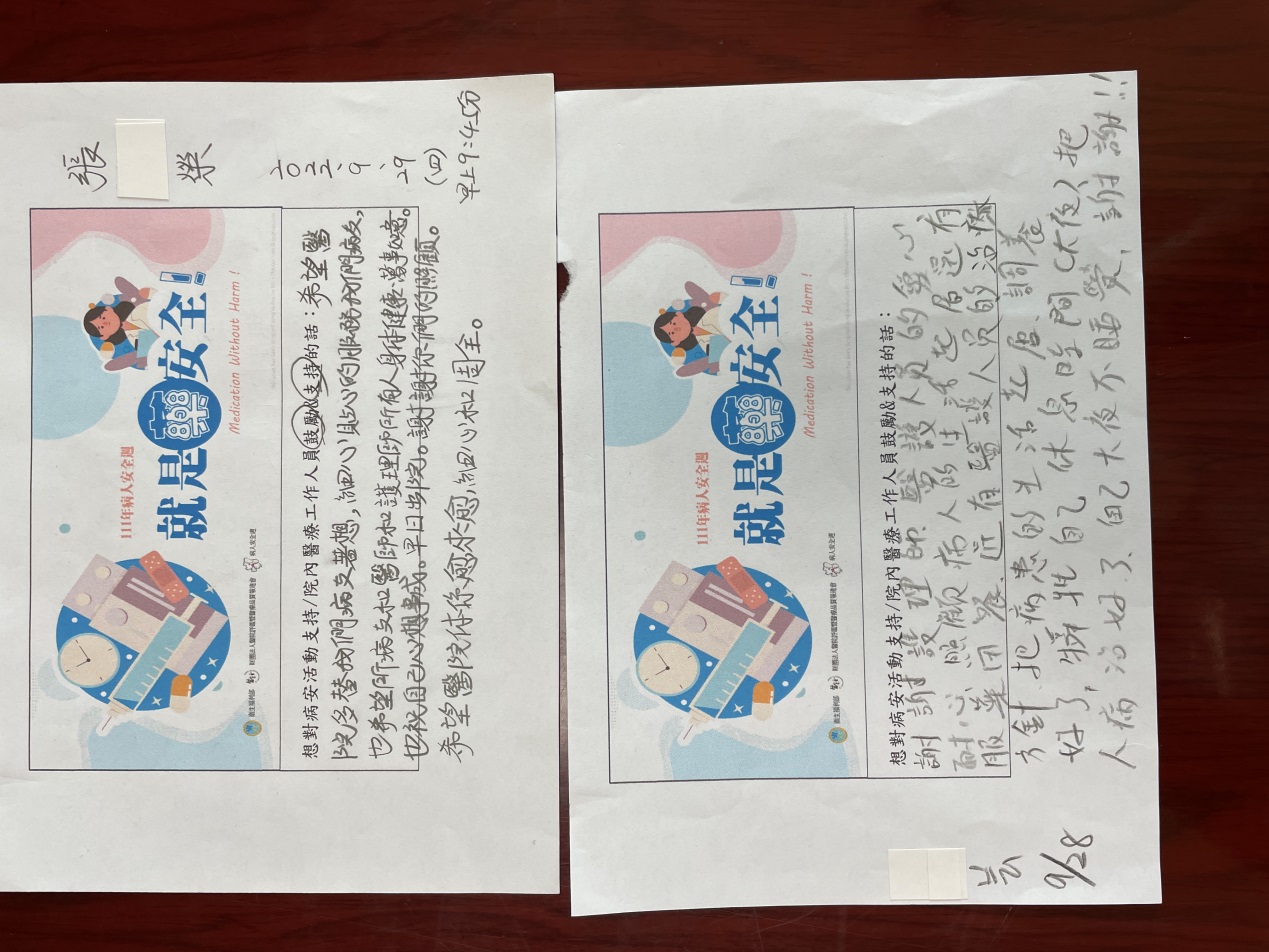 張
榮
2022.9.29
(四)
早上9:45分
111年病人安全週
就是藥安全!
Medication Without Harm!
衛生福利部
財團法人醫院評鑑暨醫療品質策進會
病人安全週
想對病安活動支持/院內醫療工作人員鼓勵&支持的話:希望醫
院多替我們病友著想,細心貼心的服務我們病友,
也希望所病友和醫師和護理師所有人身体健康.萬事如意。
也祝自己心想事成。早日出院。謝謝你們的照顧。
希望醫院你你愈來愈,細心和周全。
111年病人安全週
就是藥安全!
Medication Without Harm!
衛生福利部
財團法人醫院評鑑暨醫療品質策進會
病人安全週
想對病安活動支持/院內醫療工作人員鼓勵&支持的話:
謝謝護理師.醫護人員的愛心
耐心照顧病人的生活起居還有
服藥因為.近有醫護人員的治療
方針.把病患的生活起居.調養
好了.犧牲自己休息時間(大夜)把
人病,治好了、自己大夜不睡覺,謝謝!!
芸
9/28